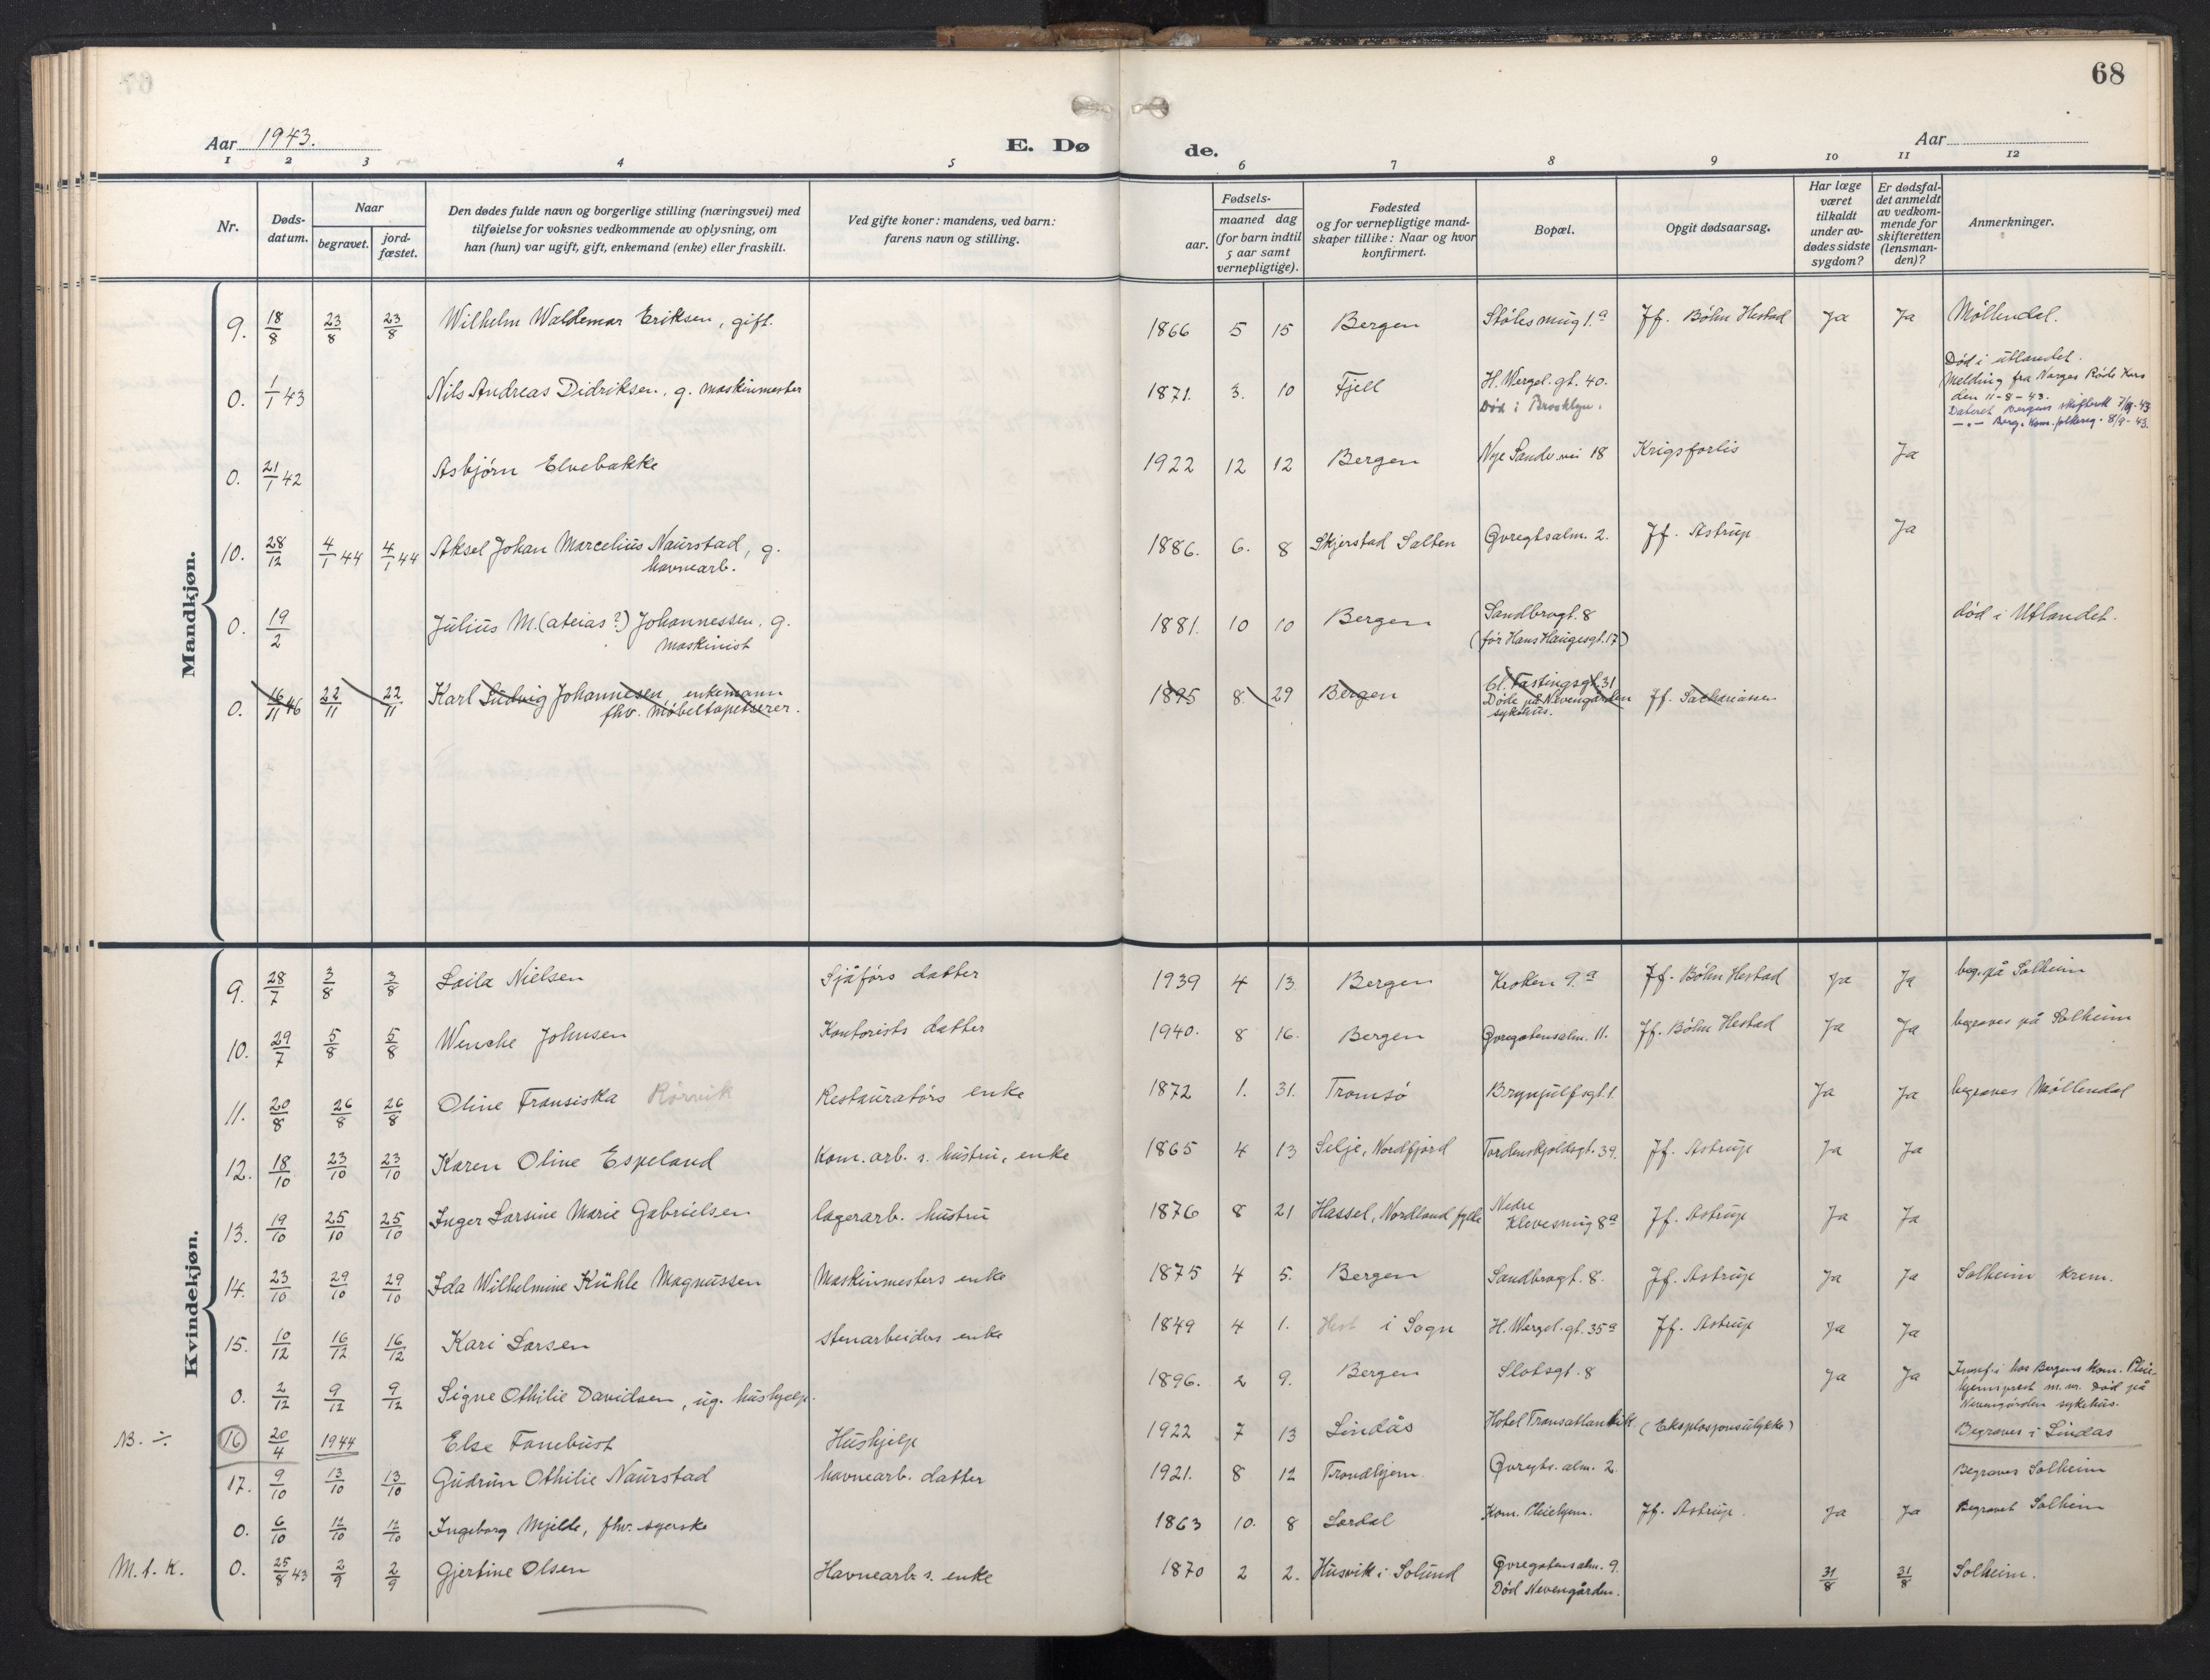 68
Aar 1943.
E. Dø
de.
Aar
1 2 3 4 5 6 7 8 9 10 11 12
Nr.
Døds-
datum.
Naar
begravet.
jord-
fæstet.
Den dødes fulde navn og borgerlige stilling (næringsvei) med
tilføielse for voksnes vedkommende av oplysning, om
han (hun) var ugift, gift, enkemand (enke) eller fraskilt.
Ved gifte koner: mandens, ved barn:
farens navn og stilling.
Fødsels-
aar.
maaned dag
(for barn indtil
5 aar samt
vernepligtige).
Fødested
og for vernepligtige mand-
skaper tillike: Naar og hvor
konfirmert.
Bopæl.
Opgit dødsaarsag.
Har læge
været
tilkaldt
under av-
dødes sidste
sygdom?
Er dødsfal-
det anmeldt
av vedkom-
mende for
skifteretten
(lensman-
den)?
Anmerkninger.
Mandkjøn.
9. 18/8 23/8 23/8 Wilhelm Waldemar Eriksen, gift. 1866 5 15 Bergen Stølesmug 1.a Jf. Bøhn Hestad Ja Ja Møllendal.
0. 1/1 43 Nils Andreas Didriksen, g. maskinmester 1871. 3. 10 Fjell H. Wergel. gt. 40.
Død i Brooklyn.
Død i utlandet.
Melding fra Norges Røde Kors
den 11-8-43.
0. 21/1 42 Asbjørn Elvebakke 1922 12 12 Bergen Nye Sandv.vei 18 Krigsforlis Ja
10. 28/12 4/1 44 4/1 44 Aksel Johan Marcelius Naurstad, g.
havnearb.
1886. 6. 8 Skjerstad Salten Øvregtsalm. 2. Jf. Astrup Ja
0. 19/2 Julius M.(ateias?) Johannessen, g.
maskinist
1881. 10 10 Bergen Sandbrogt. 8
(før Hans Haugesgt. 17)
død i Utlandet.
0. 16/11 46 22/11 22/11 Karl Ludvig Johannesen, enkemann
fhv. møbeltapetserer.
1895 8. 29 Bergen Cl. Fastingsgt. 31
Døde på Nevengården
sykehus.
Jf. Sachariassen
Kvindekjøn.
9. 28/7 3/8 3/8 Laila Nielsen Sjåførs datter 1939 4 13 Bergen Kroken 9.a Jf. Bøhn Hestad Ja Ja beg. på Solheim
10. 29/7 5/8 5/8 Wenche Johnsen Kontorists datter 1940. 8 16. Bergen Øvregatensalm. 11. Jf. Bøhn Hestad Ja Ja begraves på Solheim
11. 20/8 26/8 26/8 Oline Fransiska Rørvik Restauratørs enke 1872 1. 31. Tromsø Brynjulfsgt. 1. Ja Ja begraves Møllendal
12. 18/10 23/10 23/10 Karen Oline Espeland Kom. arb. s. hustru, enke 1865 4 13 Selje, Nordfjord Tordenskjoldsgt. 39. Jf. Astrup Ja Ja
13. 19/10 25/10 25/10 Inger Larsine Marie Gabrielsen lagerarb. hustru 1876 8 21 Hassel, Nordland fylke Nedre
Klevesmug 8a Jf. Astrup Ja Ja
14. 23/10 29/10 29/10 Ida Wilhelmine Kühle Magnussen Maskinmesters enke 1875 4 5. Bergen Sandbrogt. 8. Jf. Astrup Ja Ja Solheim krem.
15. 10/12 16/12 16/12 Kari Larsen stenarbeiders enke 1849 4 1. i Sogn H. Wergel. gt. 35a Jf. Astrup Ja Ja
0. 2/12 9/12 9/12 Signe Othilie Davidsen, ug. hushjelp. 1896. 2 9. Bergen Slotsgt. 8 Ja Ja Jordf. i hos Bergens Kom. Pleie-
hjemsprest m.m. Død på
Nevengården sykehus.
NB. ÷ 16 20/4 1944 Else Fanebust Hushjelp 1922 7 13 Lindås Hotel Transatlantik (Eksplosjonsulykke) Begraves i Lindås
17. 9/10 13/10 13/10 Gudrun Othilie Naurstad havnearb. datter 1921. 8 12 Trondhjem. Øvregts. alm. 2. Begraves Solheim
0. 6/10 12/10 12/10 Ingeborg Mjelde, fhv. syerske 1863 10. 8 Lærdal Kom. Pleiehjem. Jf. Astrup. Ja Ja Begravet Solheim
M.t.K. 0. 25/8 43 2/9 2/9 Gjertine Olsen Havnearb. s. enke 1870 2 2. Husvik i Solund Øvregatensalm. 9.
Død Nevengården.
31/8 31/8 Solheim.